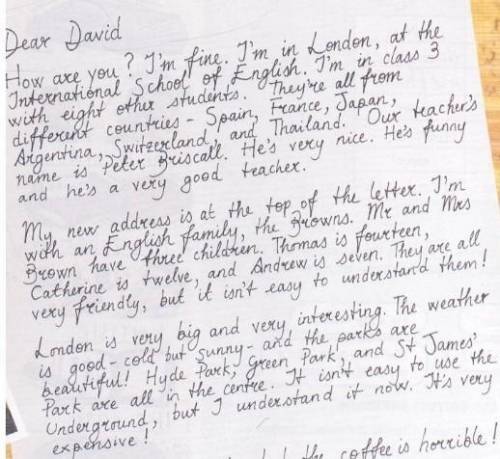 Dear David
How are you? I'm fine. I'm in London, at the
International School of English. I'm in class 3
with eight other students. They're all from
different countries - Spain, France, Japan,
Argentina, Switzerland, and Thailand. Our teacher's
name is Peter Briscall. He's very nice. He's funny
and he's a very good teacher.
My new address is at the top of the letter. I'm
with an English family, the Browns. Mr and Mrs
Brown have three children. Thomas is fourteen,
Catherine is twelve, and Andrew is seven. They are all
very friendly, but it isn't easy to understand them!
London is very big and very, interesting. The weather
is good - cold but sunny - and the parks are
beautiful! Hyde Park, Green Park, and St James'
Park are all in the centre. It isn't easy to use the
Underground, but I understand it now. It's very
expensive!
the coffee is horrible!